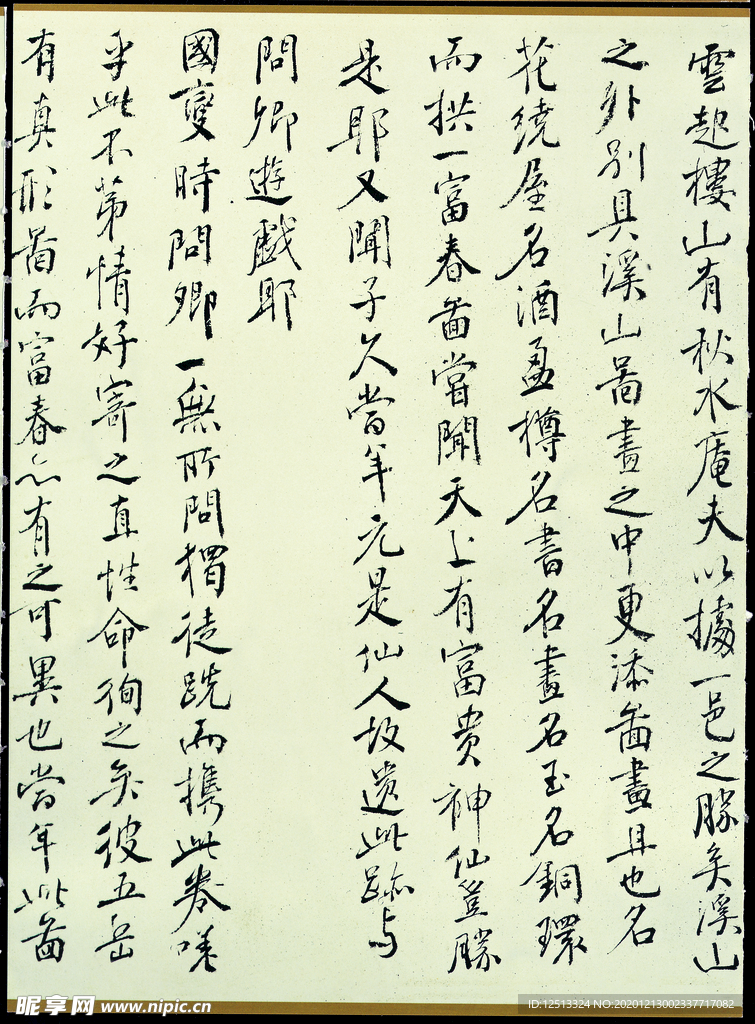 雲起樓山有秋水庵夫以據一邑之勝矣溪山
之外別具溪山圖畫之中更添圖畫且也名
花繞屋名酒盈樽名書名畫名玉名銅環
而拱一富春圖嘗聞天上有富貴神仙豈勝
是耶又聞子久當年元是仙人故遺此跡与
問卿遊戲耶
國變時問卿一無所問獨徒跣而攜此卷嗟
乎此不第情好寄之直性命徇之矣彼五岳
有真形圖而富春亦有之可異也當年此圖
昵享网 www.nipic.cn
ID:12513324 NO:20201213002337717082